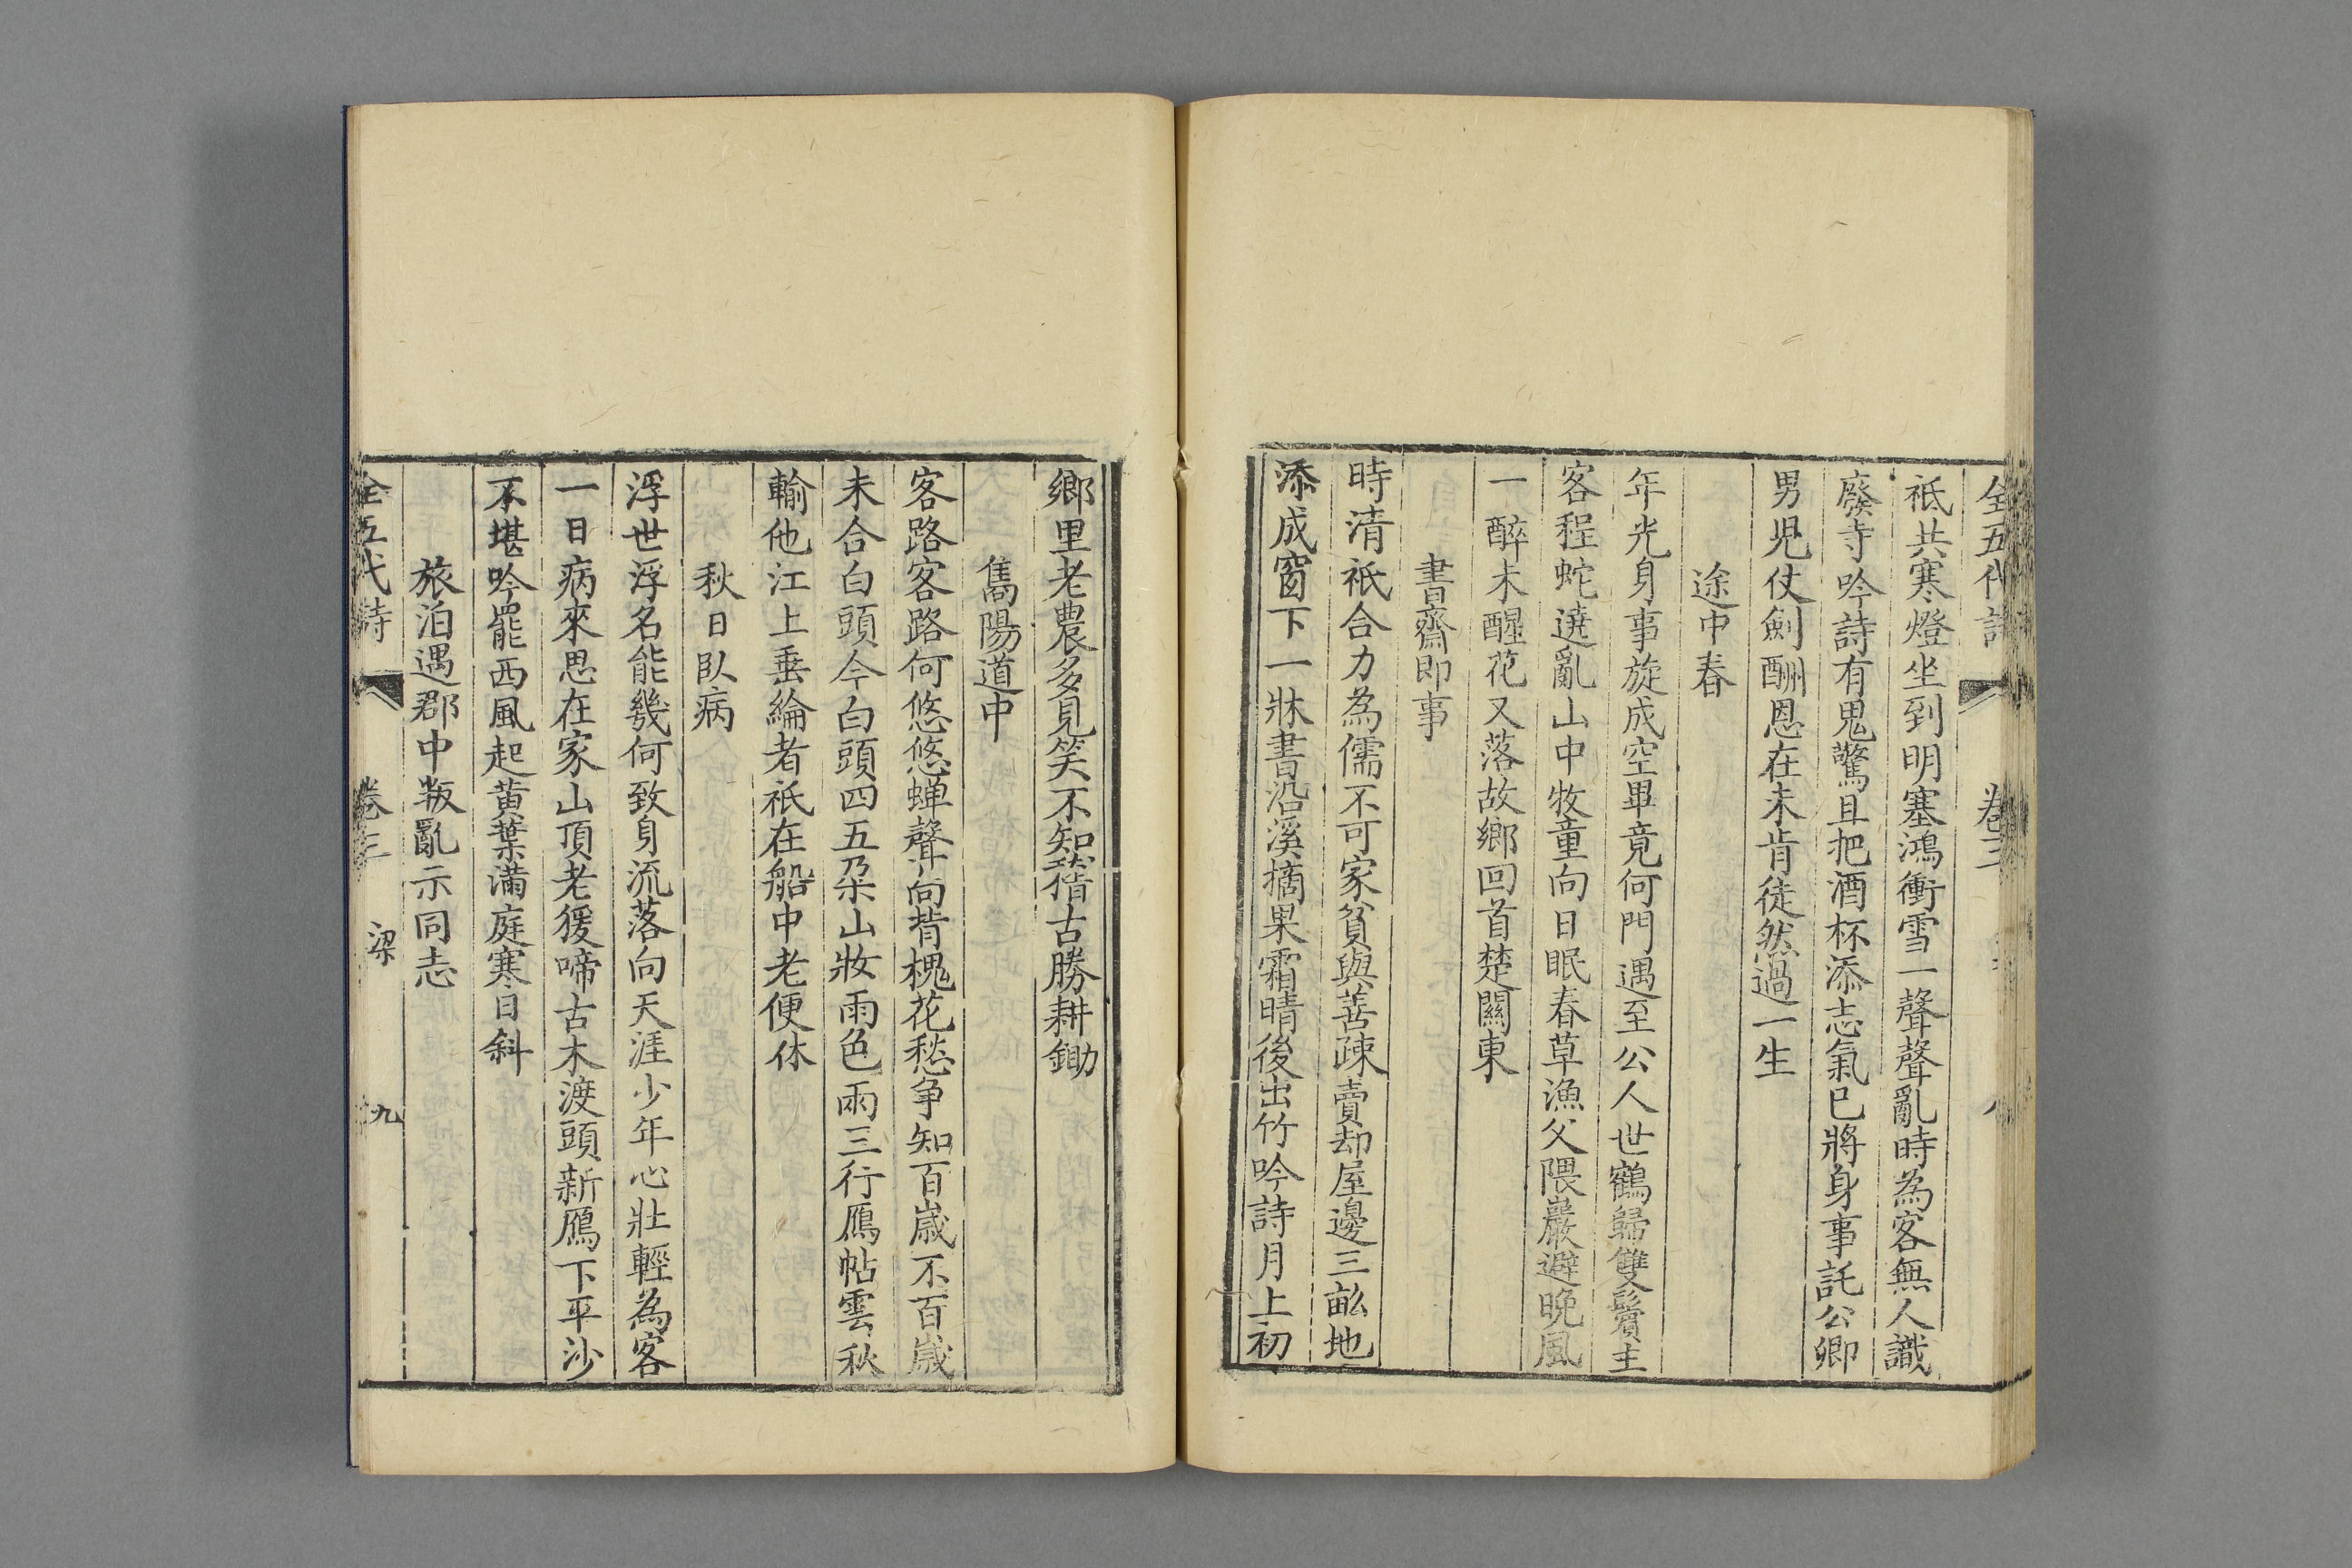 全五代詩 卷三 八
祇共寒燈坐到明塞鴻衝雪一聲聲亂時為客無人識
廢寺吟詩有鬼驚且把酒杯添志氣已將身事託公卿
男兒仗劍酬恩在未肯徒然過一生
途中春
年光身事旋成空畢竟何門遇至公人世鶴歸雙鬢主
客程蛇遶亂山中牧童向日眠春草漁父隈巖避晚風
一醉未醒花又落故鄉回首楚關東
書齋即事
時清祇合力為儒不可家貧與善疎賣却屋邊三畝地
添成窗下一牀書沿溪摘果霜晴後出竹吟詩月上初
鄉里老農多見笑不知稽古勝耕鋤
雋陽道中
客路客路何悠悠蟬聲向背槐花愁爭知百歲不百歲
未合白頭今白頭四五朶山妝雨色兩三行鴈帖雲秋
輸他江上垂綸者祇在船中老便休
秋日臥病
浮世浮名能幾何致身流落向天涯少年心壯輕為客
一日病來思在家山頂老猨啼古木渡頭新鴈下平沙
不堪吟罷西風起黃葉滿庭寒日斜
旅泊遇郡中叛亂示同志
全五代詩 卷三 梁 九